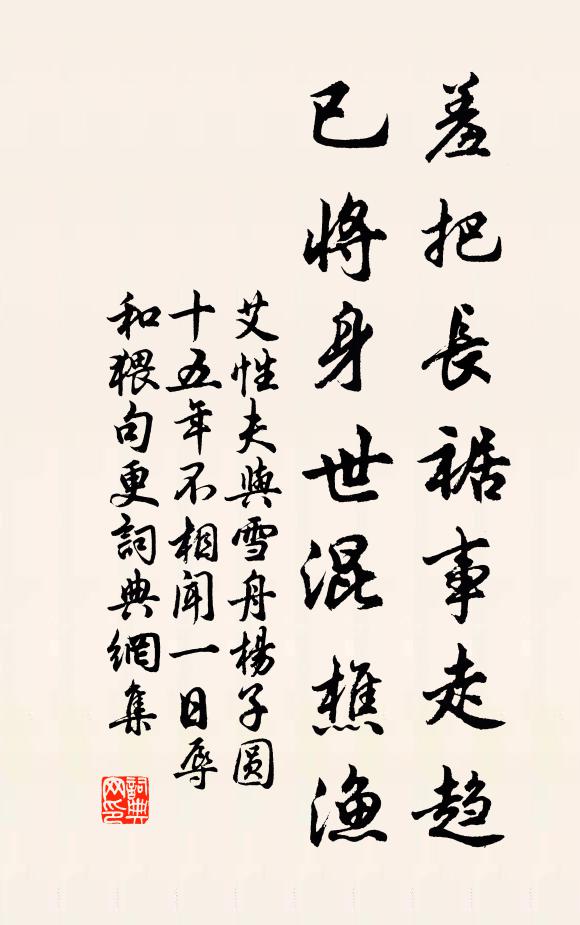 羞把長裾事走趋
已將身世混樵漁
艾性夫與雪舟楊子圆
十五年不相聞一日辱
和猥句更詞典網集
詞典
网印